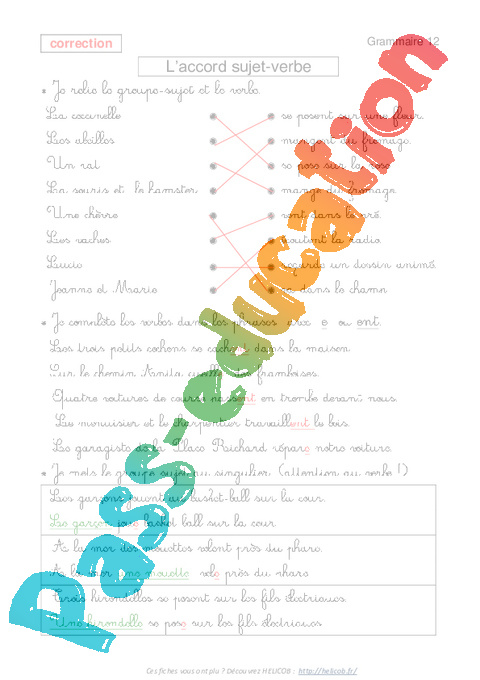 correction
Grammaire 12
L'accord sujet-verbe
* Je relie le groupe-sujet et le verbe.
La coccinelle se posent sur une fleur.
Les abeilles mangent du fromage.
Un rat se pose sur la rose.
La souris et le hamster mange du fromage
Une chèvre vont dans le pré.
Les vaches écoutent la radio
Lucie regarde un dessin animé
Jeanne et Marie va dans le champ
* Je complète les verbes dans les phrases avec e ou ent.
Les trois petits cochons se cachent dans la maison.
Sur le chemin Anita cueille des framboises.
Quatre voitures de course passent en trombe devant nous.
Le menuisier et le charpentier travaillent le bois.
Le garagiste de la Place Richard répare notre voiture.
* Je mets le groupe sujet au singulier. (attention au verbe !)
Les garçons jouent au basket-ball sur la cour.
Le garçon joue basket ball sur la cour
A la mer des mouettes volent près du phare.
A la mer une mouette vole près du phare
Trois hirondelles se posent sur les fils électriques.
Une hirondelle se pose sur les fils électriques
Ces fiches vous ont plu ? Découvrez HELICOB : http://helicob.fr/
Pass-education